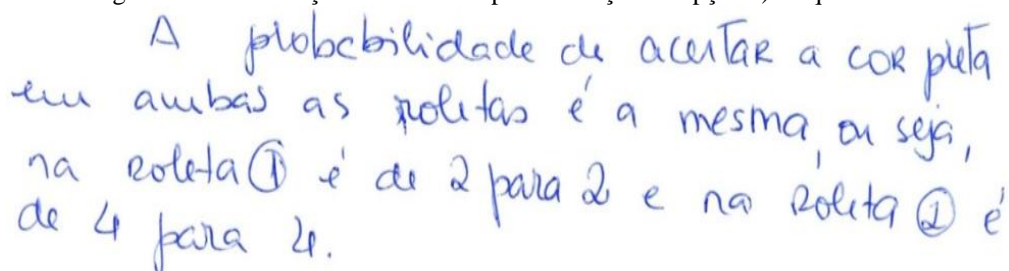 A probabilidade de acertar a cor preta
em ambas as roletas é a mesma, ou seja,
na roleta ① é de 2 para 2 e na roleta ② é
de 4 para 4.